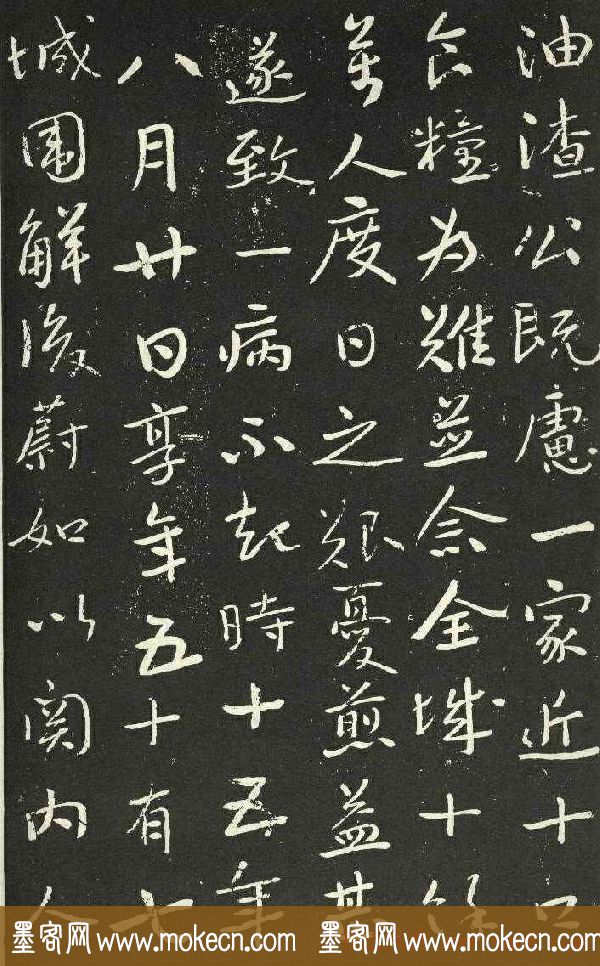 油渣公既慮一家近十口
食糧为难並念全城十餘
萬人度日之艰憂煎益甚
遂致一病不起時十五年
八月廿日享年五十有七
城围解後蔚如以関内人
墨客网 www.mokecn.com 墨客网 www.mokecn.com